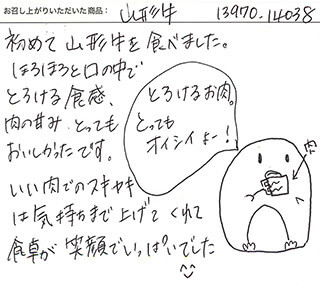 お召し上がりいただいた商品： 山形牛 13970-14038
初めて山形牛を食べました。
ほろほろと口の中で
とろける食感、
肉の甘み とっても
おいしかったです。
いい肉でのスキヤキ
は気持ちまで上げてくれて
食卓が笑顔でいっぱいでした
とろけるお肉。
とっても
オイシイよー!
肉